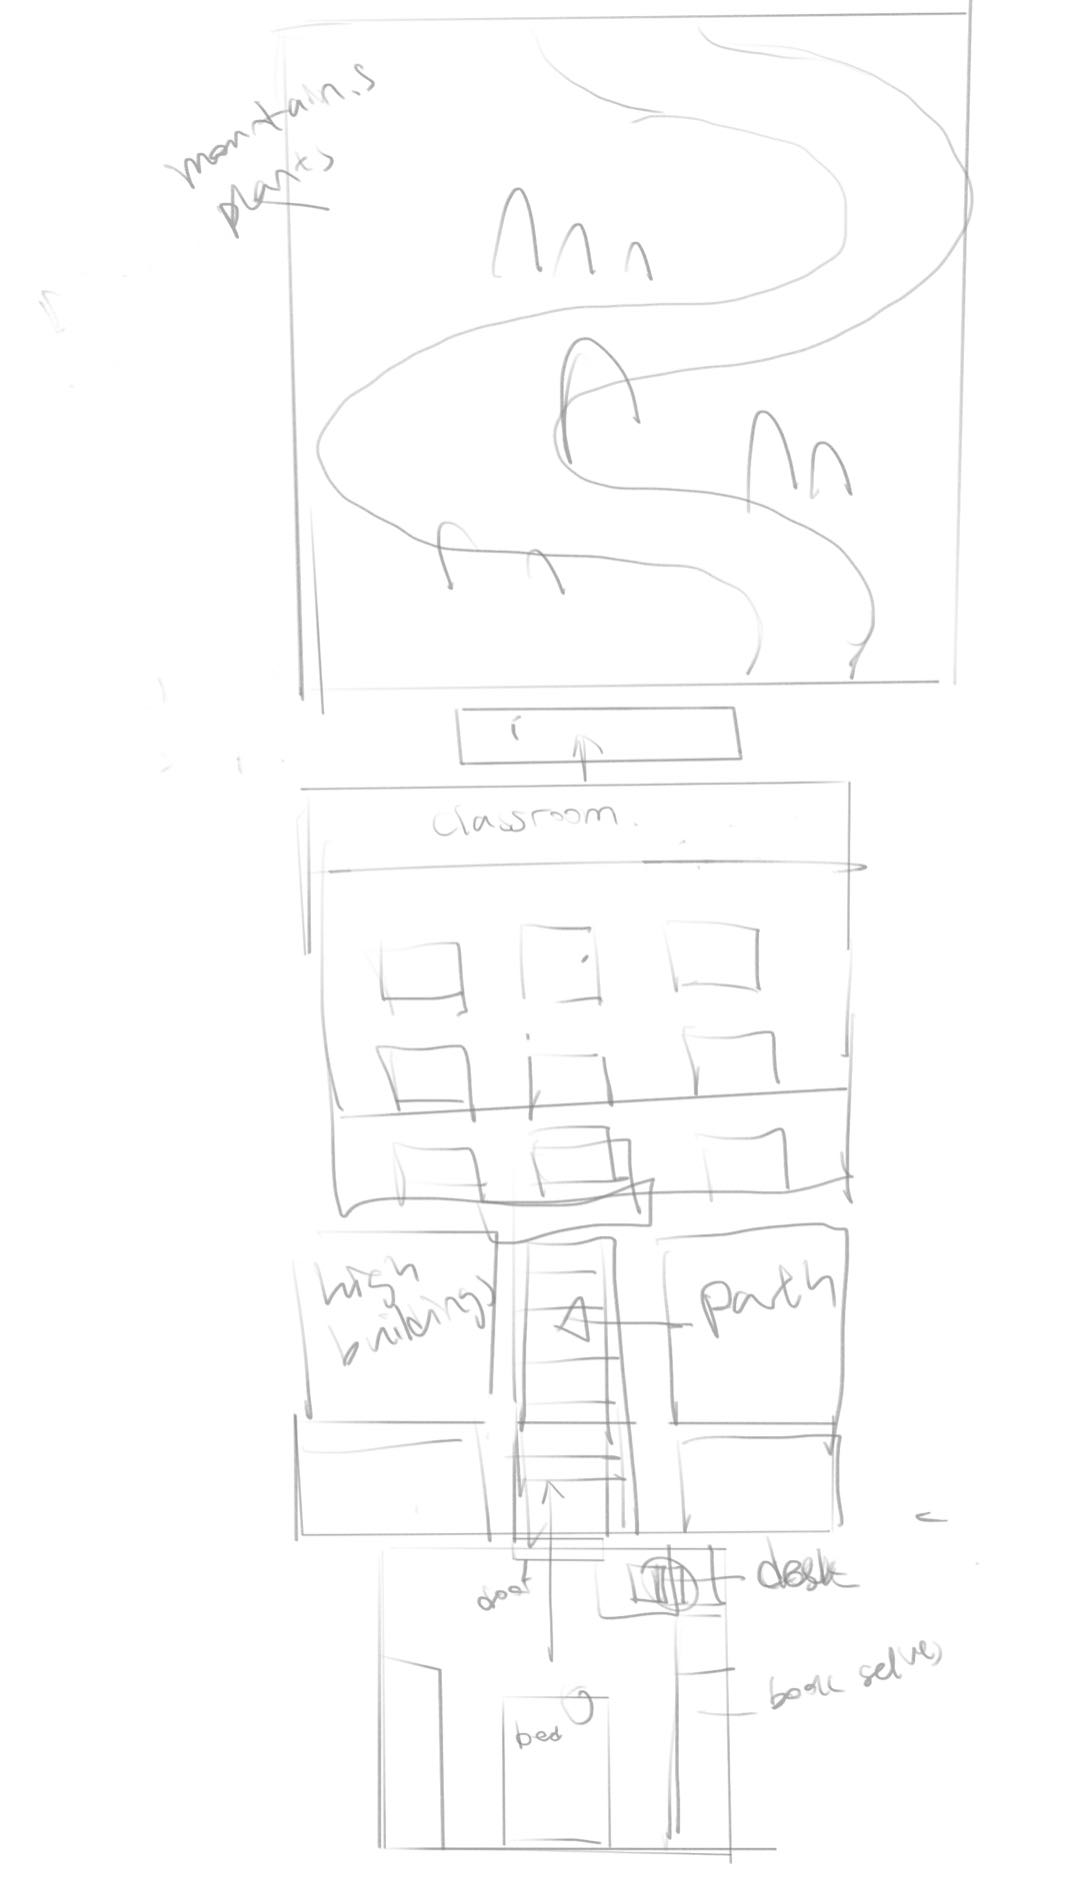 mountains
plants
classroom.
high
buildings
path
door
desk
book selves
bed